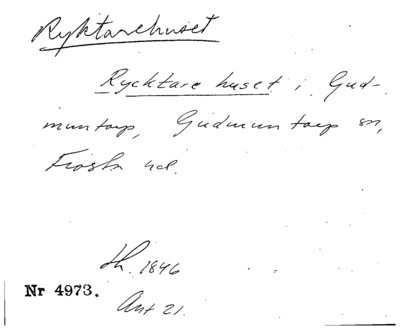 Ryktarehuset
Rycktare huset i Gud-
muntorp, Gudmuntorp sn,
Frosta hd.
th. 1846
Nr 4973.
Ant 21.